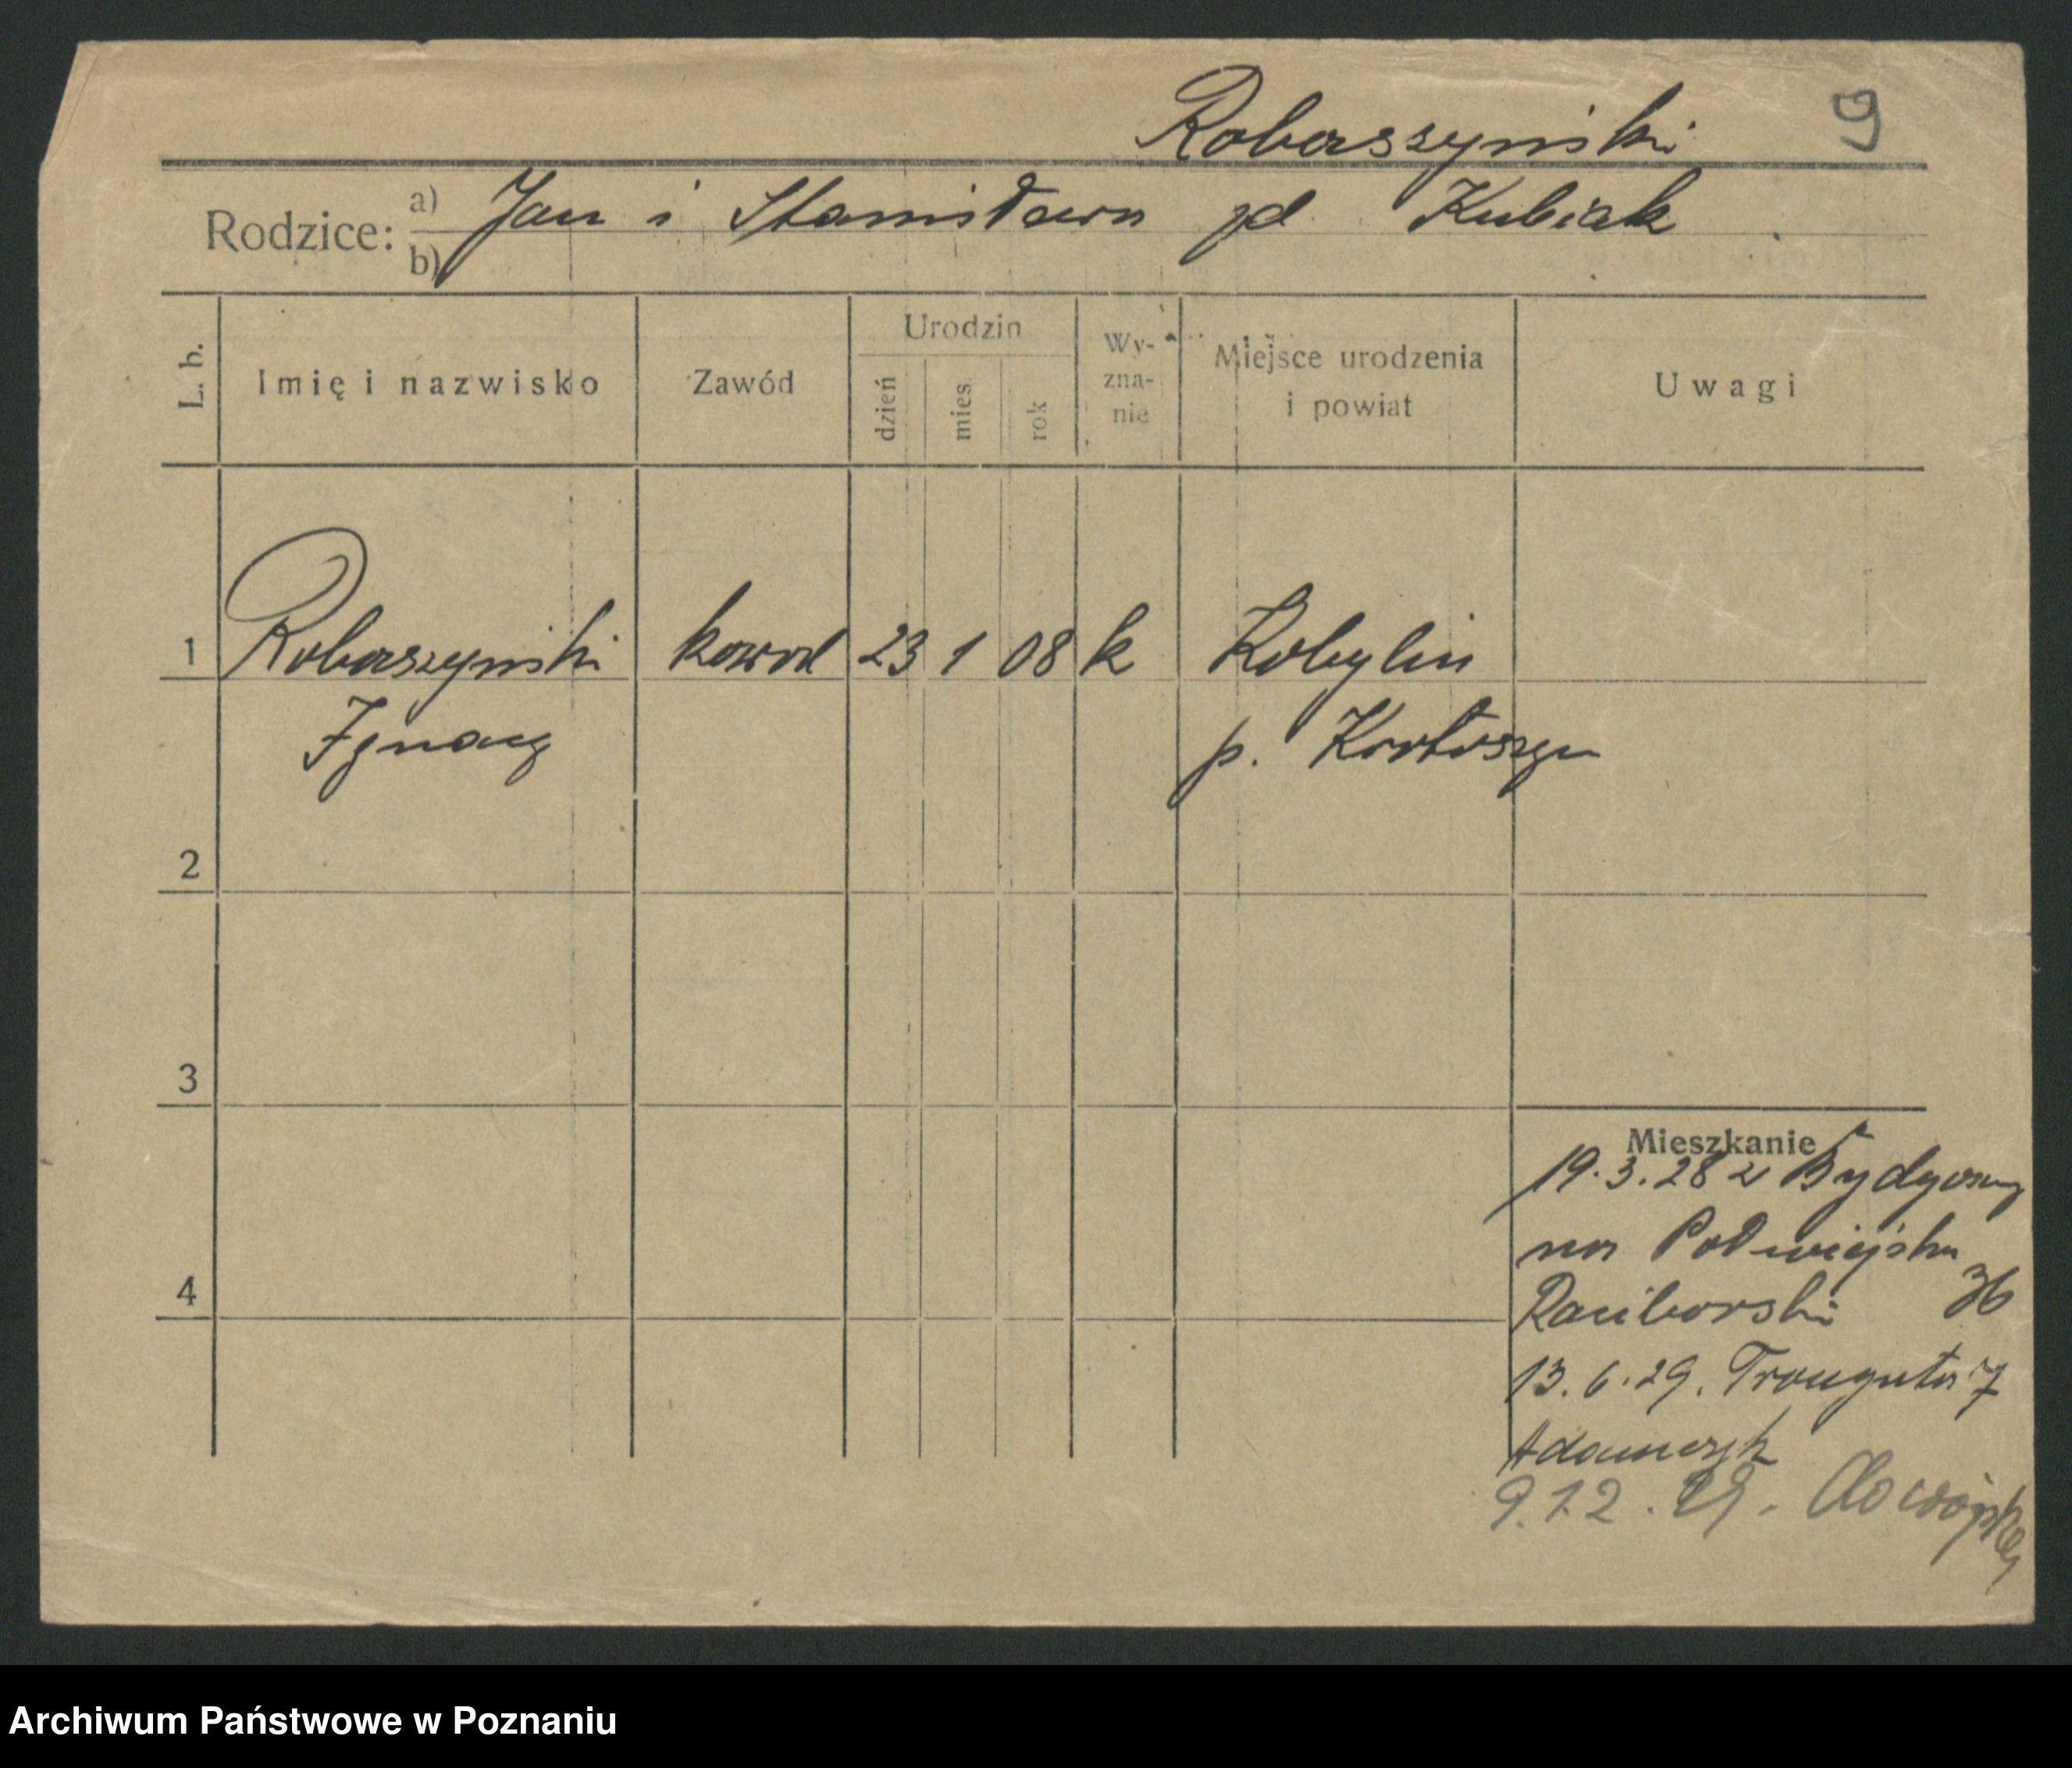 Robaszyński 9
Rodzice: a) Jan i Stanisława zd Kubiak
b)
L. b. Imię i nazwisko Zawód Urodzin dzień mies. rok Wy-zna-nie Miejsce urodzenia i powiat Uwagi
1 Robaszyński kowal 23 1 08 k Kobylin
Ignacy p. Krotoszyn
2
3
Mieszkanie
19.3.28 z Bydgoszczy
na Podwiejska
4 Raciborski 36
13.6.29. Trauguta 7
Adamczyk
9.12.29. do wojska
Archiwum Państwowe w Poznaniu